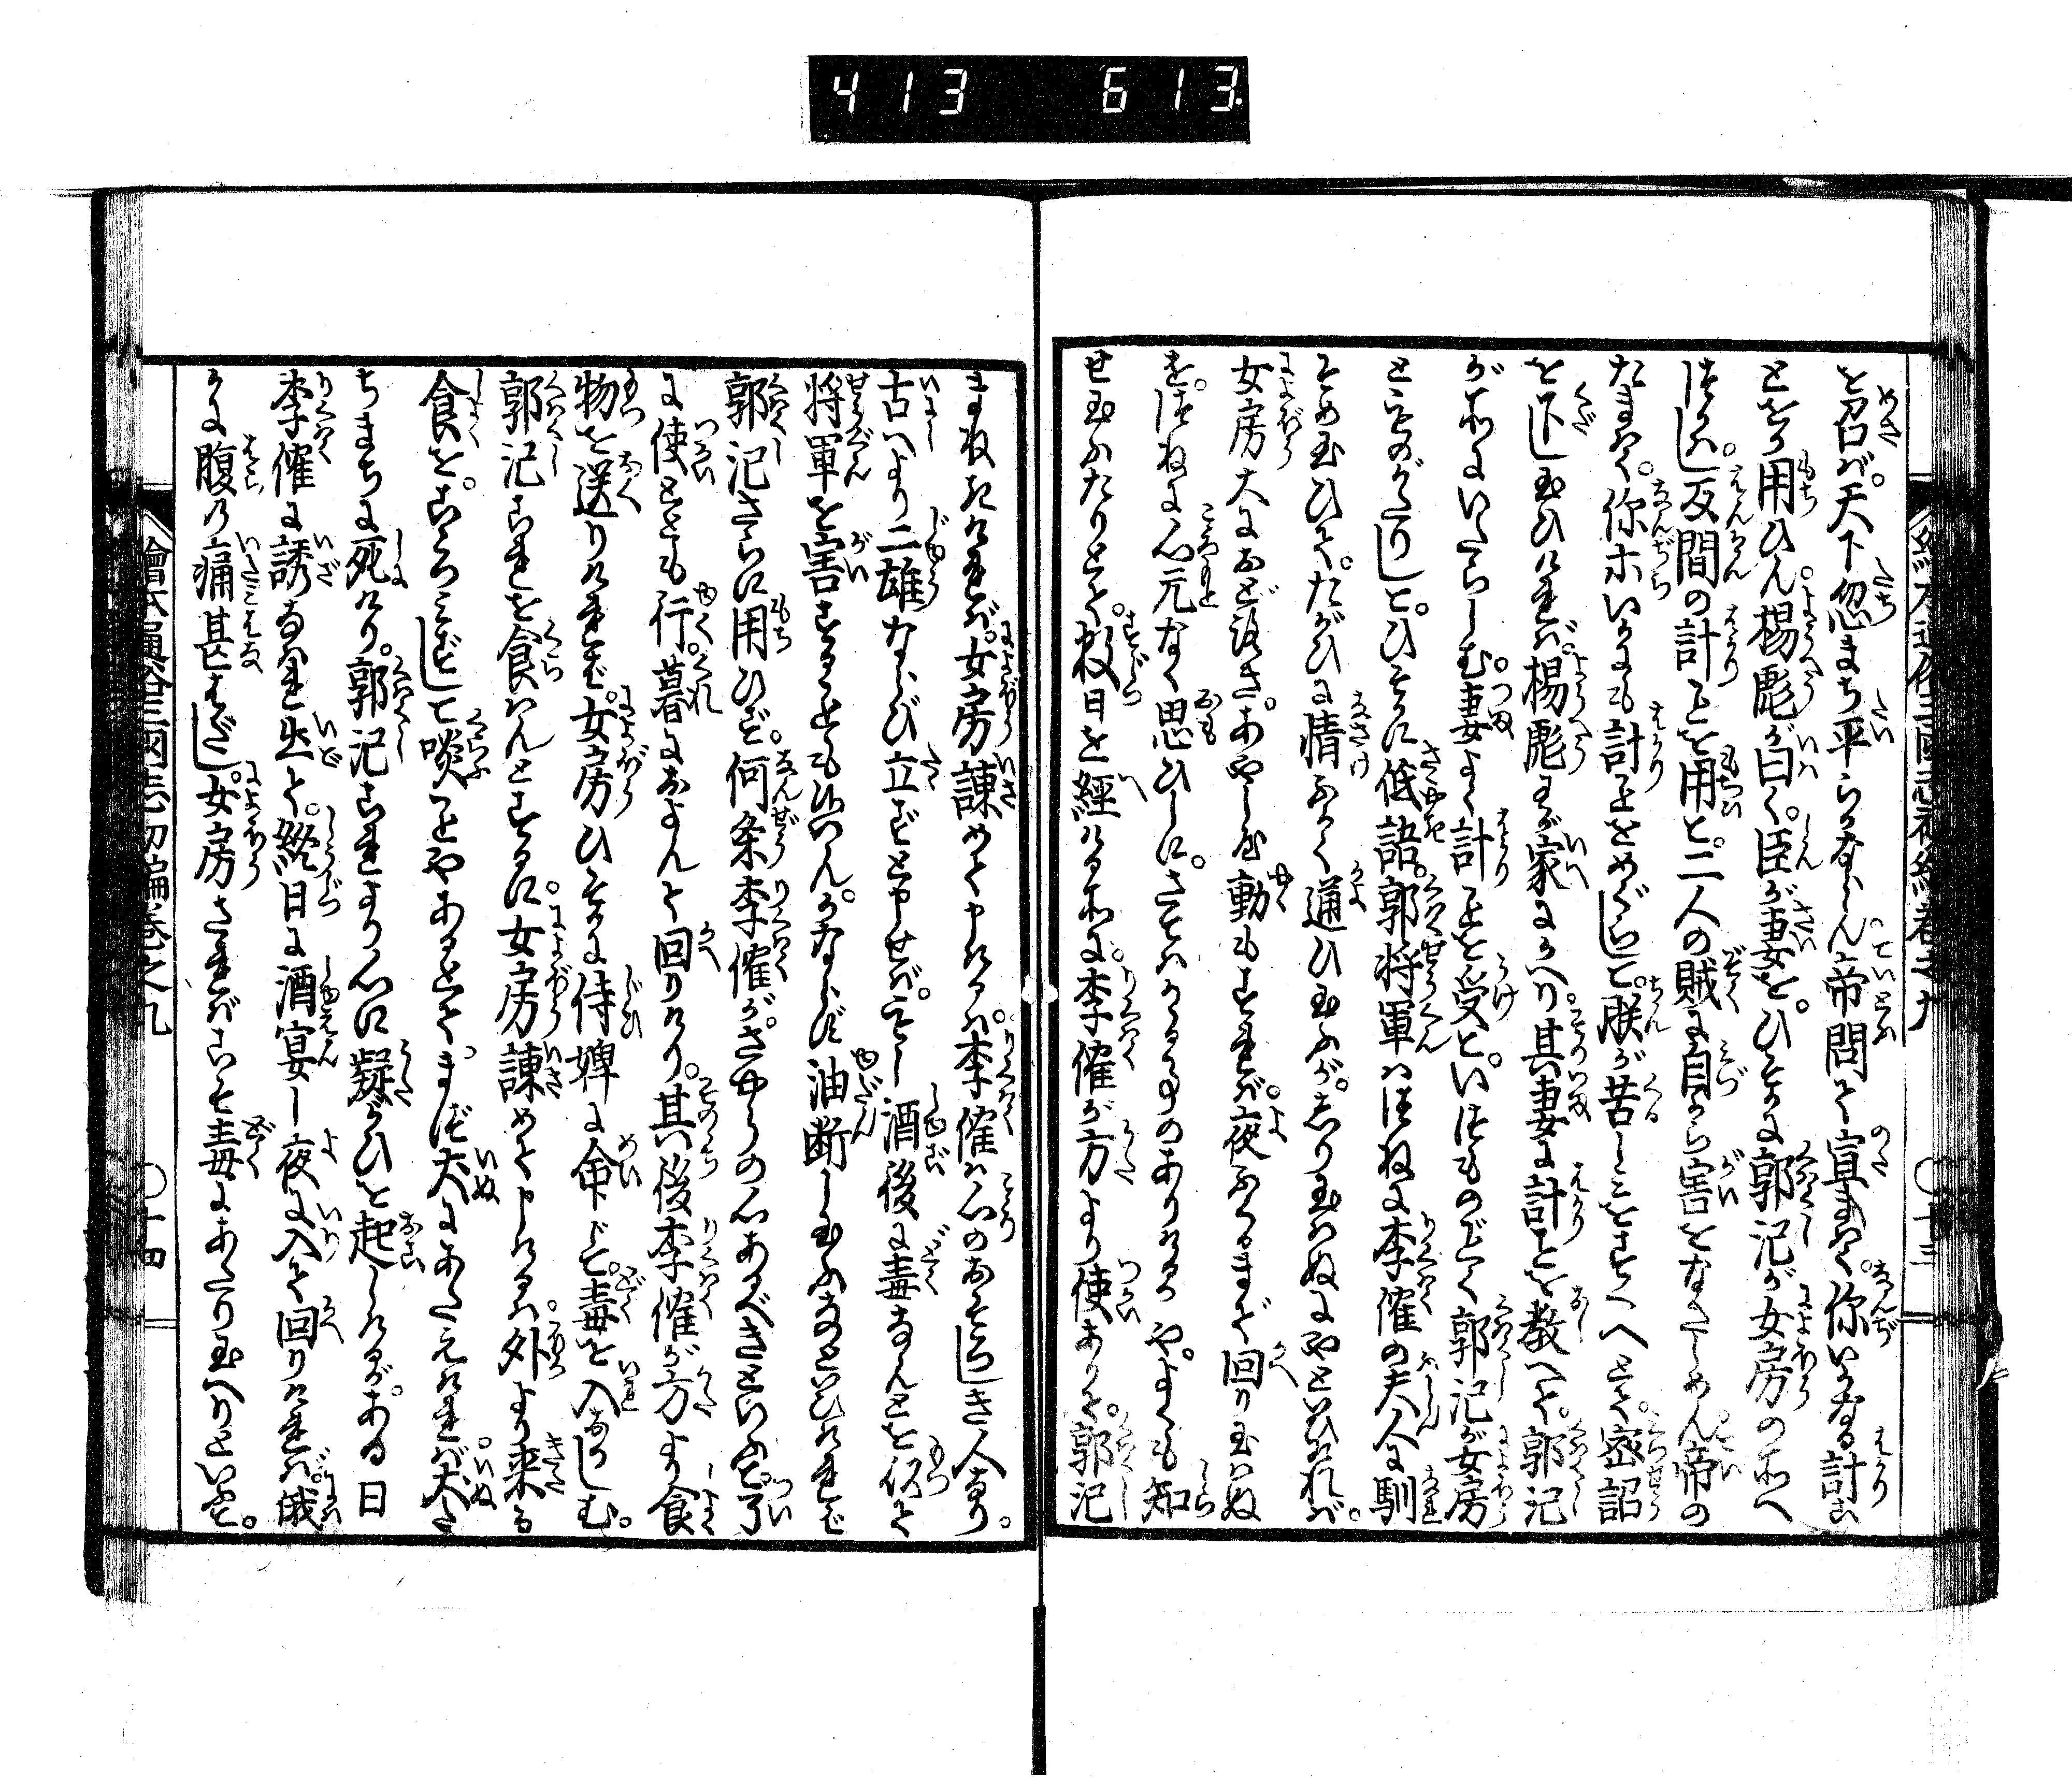 413 613
を召ば。天下忽まち平らかならん。帝問て宣まはく。你いかなる計ご
とをか用ひん。楊彪が曰く。臣が妻を。ひそかに郭汜が女房の所へ
つかはし。反間の計ことを用ひて。二人の賊に自から害をなさしめん。帝の
たまはく。你ホいかにも計ことをめぐらして。朕が苦しみをすくへとて。密詔
を下し玉ひければ。楊彪わが家にかへり。其妻に計ことを教へて。郭汜
が所にいたらしむ。妻よく計ことを受て。いつものごとく郭汜が女房
とものがたりして。ひそかに低語。郭将軍はつねに李傕の夫人に馴
そめ玉ひて。たがひに情ふかく通ひ玉ふが。しり玉はぬにやといひければ。
女房大におどろき。あやしや動もすれば。夜ふくるまで回り玉はぬ
を。つねに心元なく思ひしに。さてはかかる事のありけるかや。よくも知
せ玉ふたりとて。数日を経ける所に。李傕が方より使ありて。郭汜
をまねきければ。女房諫めて申けるは。李傕は心のおそろしき人なり。
古へより二雄ならび立ずと申せば。もし酒後に毒なんどを似て
将軍を害するとも如何せん。かならず油断し玉ふなといひければ
郭汜さらに用ひず。何条李傕が。さやうの心あるべきといふて。了
に使とともに行。暮におよんで回りけり。其後李傕が方より食
物を送りければ。女房ひそかに侍婢に命じて。毒を入おかしむ。
郭汜これを食はんとするに。女房諫めて申けるは。外より来る
食を。こころみずして啖ことやあるとて。まづ犬にあたえければ。犬た
ちまちに死けり。郭汜これより心に疑がひを起しけるが。ある日
李傕に誘なはれ出て。終日に酒宴し夜に入て回りければ。俄
かに腹の痛甚はだし。女房さればこそ毒にあたり玉へりといふて。
繪本通俗三國志初編巻之九 〇十三
繪本通俗三國志初編巻之九 〇十四